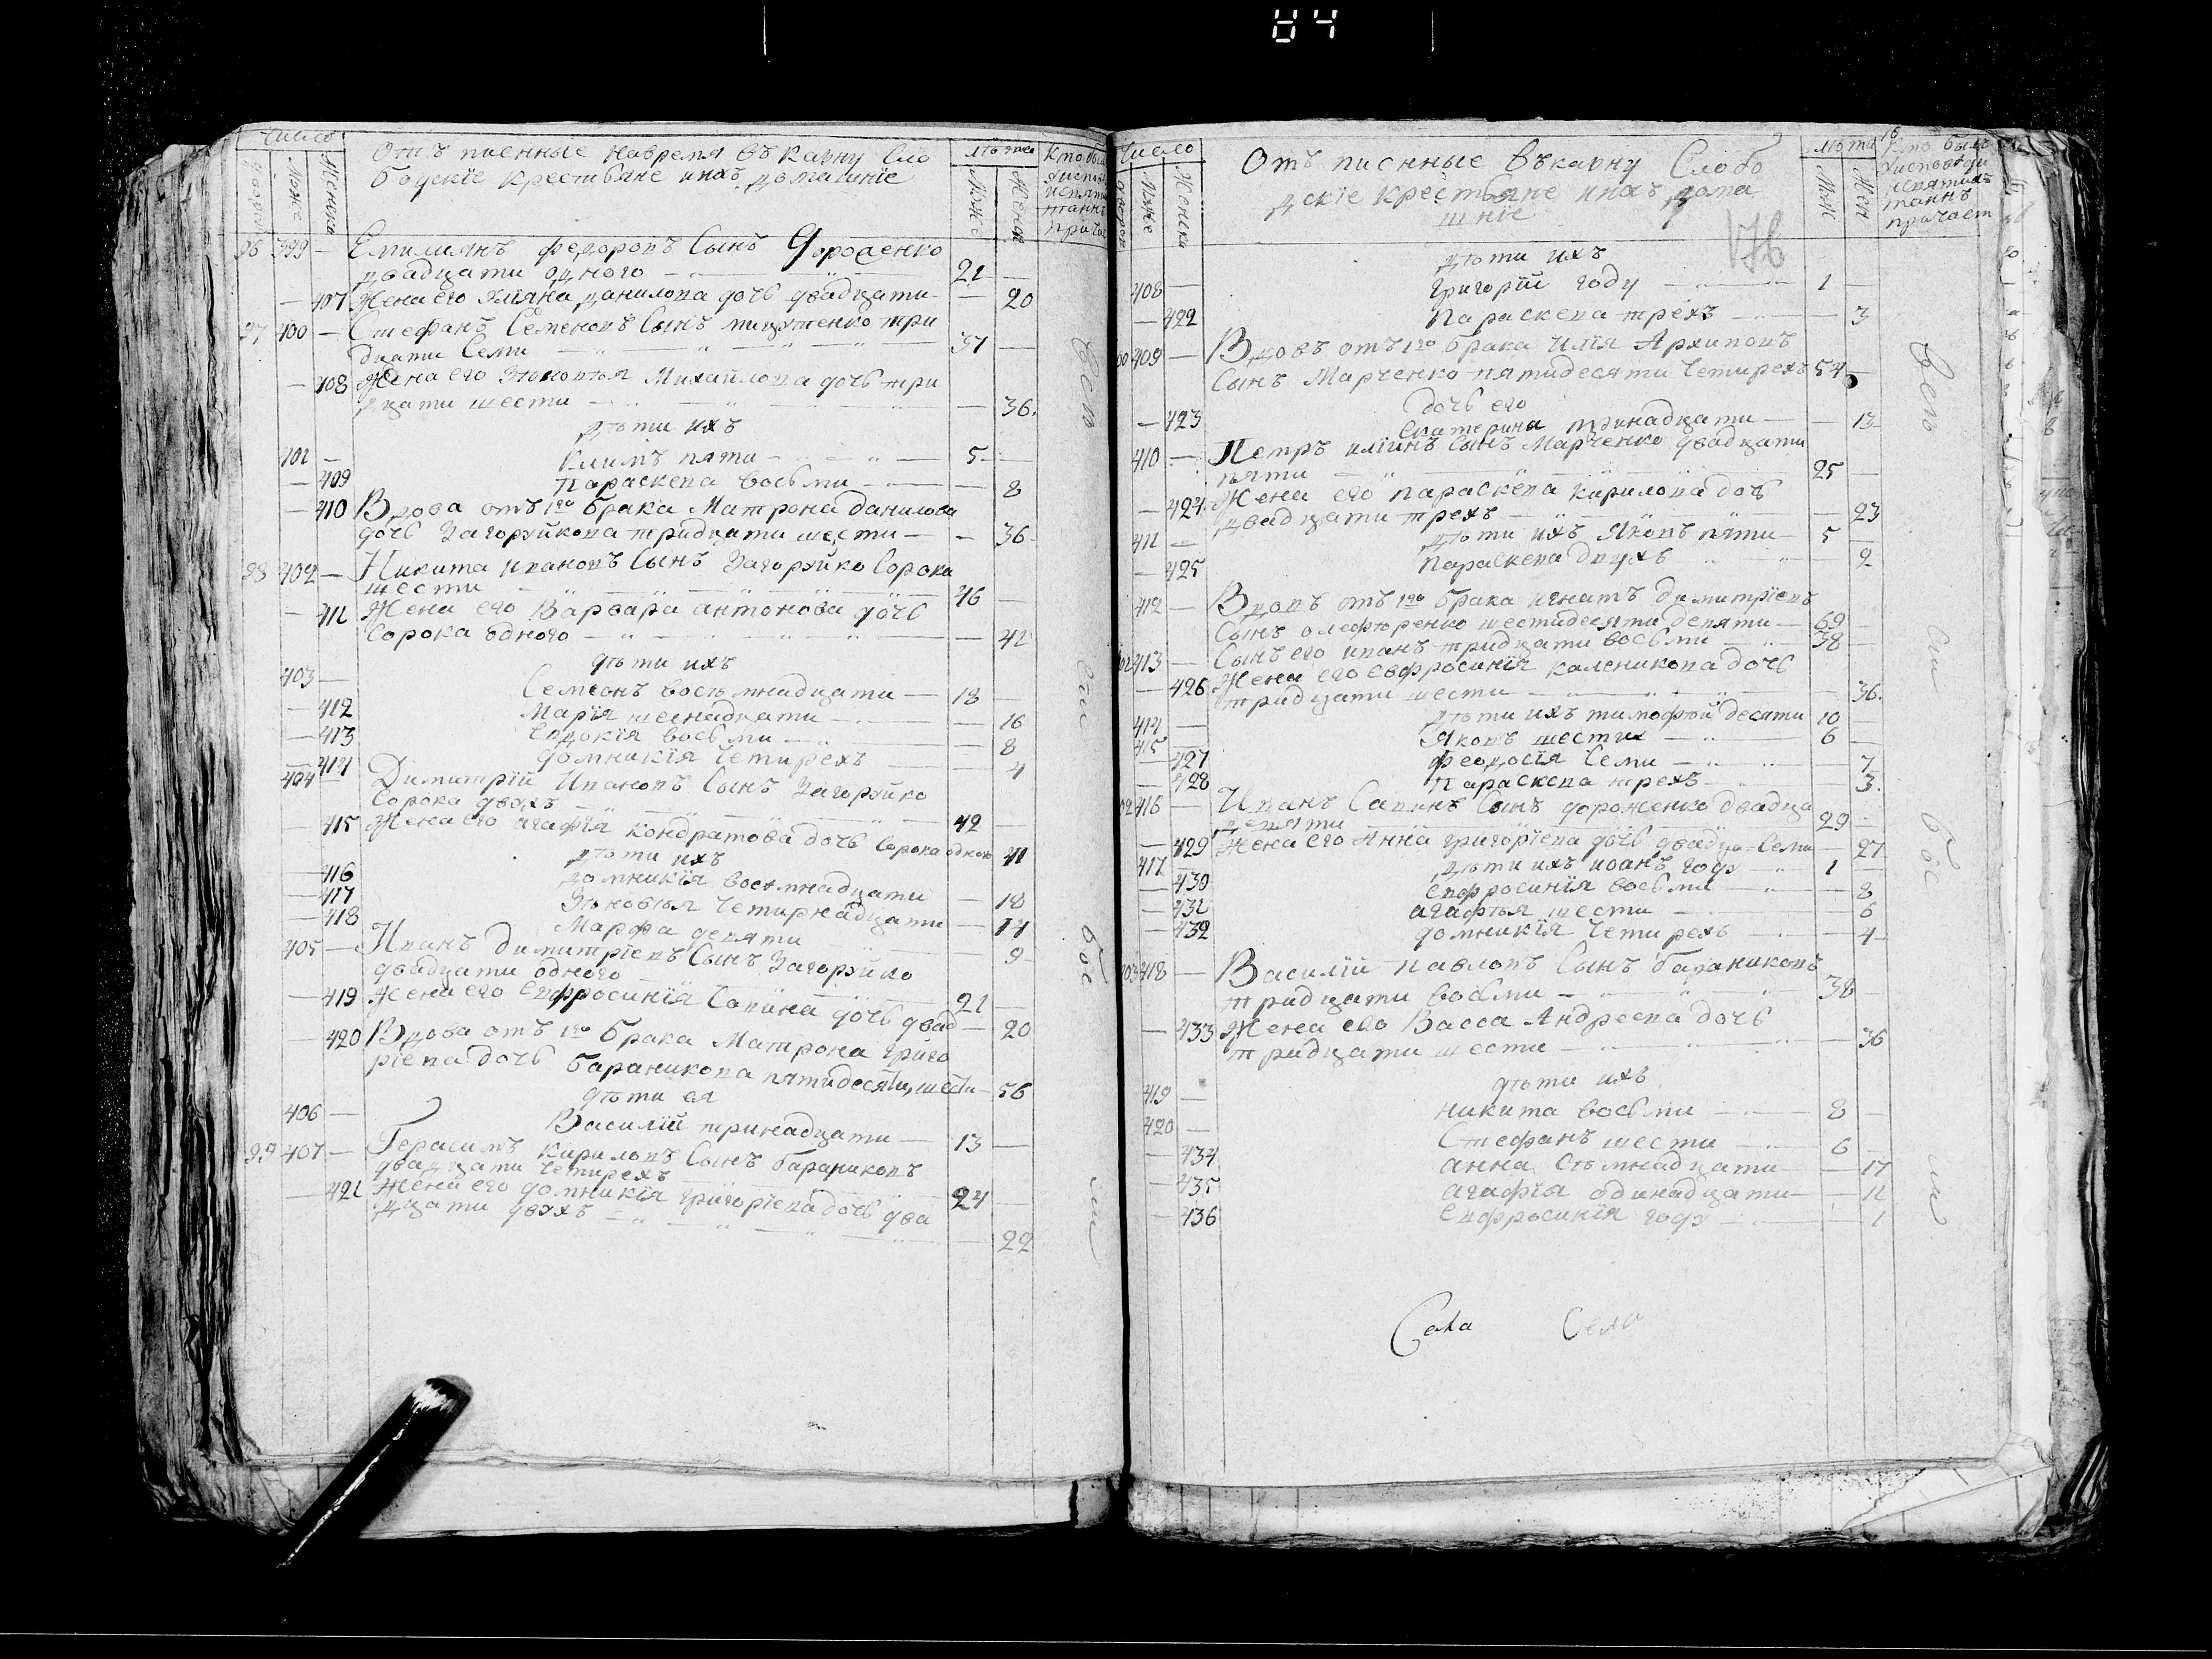 84
Число
Мужс
Женска
Отъ писнные на время въ казну Сло
бодскіе крестьяне ихъ домашніе
лѣта
Муже
Женск
96 399 — Емилианъ федоровъ Сынъ
двадцати одного — 21 —
— 407 Жена его Улїяна данилова дочь двадцати — — 20
97 400 — Стефанъ Семеновъ Сынъ три
дцати Семи — 37 —
— 408 Жена его Михайлова дочь три
дцати шести — — 36.
дѣти ихъ
401 — Климъ пяти — 5 —
— 409 Параскева восьми — — 8
— 410 Вдова отъ 1го брака Матрона данилова
дочь Загоруйкова тридцати шести — — 36
98 402 — Никита ивановъ Сынъ Загоруйко Сорока
шести — 46 —
— 411 Жена его Варвара антонова дочь
Сорока одного — — 41
дѣти ихъ
403 —
Семеонъ восемнадцати — 18 —
— 412 Марїя шеснадцати — — 16
— 413 Евдокїя восьми — — 8
— 414 домникїя Четирехъ — — 4
404 — Димитрїй Ивановъ Сынъ Загоруйко
Сорока двухъ — 42 —
— 415 Жена его агафїя кондратова дочь Сорока одного 41
дѣти ихъ
— 416 домникїя восемнадцати — 18
— 417 Зѣновѣя Четирнадцати — 14
— 418 Марфа девяти — 9
405 — Иванъ димитрїевъ Сынъ Загоруйко
двадцати одного — 21 —
— 419 Жена его Евфросинїя Савина дочь двад — 20
— 420 Вдова отъ 1го брака Матрона Григо
рїева дочь бараникова пятидесяти шести — 56
дѣти ея
406 —
Василїй тринадцати — 13 —
99 407 — Герасимъ кириловъ Сынъ бараниковъ
двадцати Четирехъ — 24 —
— 421 Жена его домникїя григорїева дочь два
дцати двухъ — — 22
Число
Мужс
Женска
Отъ писнные въ казну Слобо
дскїе крестьяне ихъ дома
шнїе
лѣта
Муж
Жен
кто былъ
исповѣди
176
дѣти ихъ
408 — григорїй году — 1
— 422 Параскева трехъ — — 3
409 — Вдовъ отъ 1го брака Илїя Архиповъ
Сынъ Марченко пятидесяти Четирехъ 54 —
дочь его
— 423 екатерина тринадцати — — 13
410 — Петръ илїинъ Сынъ Марченко двадцати
пяти — 25 —
— 424 Жена его параскева кирилова дочь
двадцати трехъ — — 23
411 — дѣти ихъ Яковъ пяти — 5 —
— 425 Параскева двухъ — — 2
412 — Вдовъ отъ 1го брака игнатъ димитрїевъ
Сынъ шестидесяти девяти — 69 —
413 — Сынъ его иванъ тридцати восьми — 38 —
— 426 Жена его евфросинїя каленикова дочь
тридцати шести — — 36.
414 — дѣти ихъ тимофѣй десяти 10 —
415 — Яковъ шести — 6 —
— 427 феодосїя Семи — — 7
— 428 Параскева трехъ — — 3.
416 — Иванъ Савинъ Сынъ дороженко двадца
девяти — 29 —
— 429 Жена его Анна григорїева дочь двадца Семи — 27
417 — дѣти ихъ иоанъ году — 1 —
— 430 евфросинїя восьми — — 8
— 431 агафѣя шести — — 6
— 432 домникїя Четирехъ — — 4
103 418 — Василїй павловъ Сынъ бараниковъ
тридцати восьми — 38 —
— 433 Жена его Васса Андреева дочь
тридцати шести — — 36
дѣти ихъ
419 — никита восьми — 8 —
420 — Стефанъ шести — 6 —
— 434 анна Сѣмнадцати — — 17
— 435 агафїя одинадцати — — 11
— 436 евфросинїя году — — 1
Села